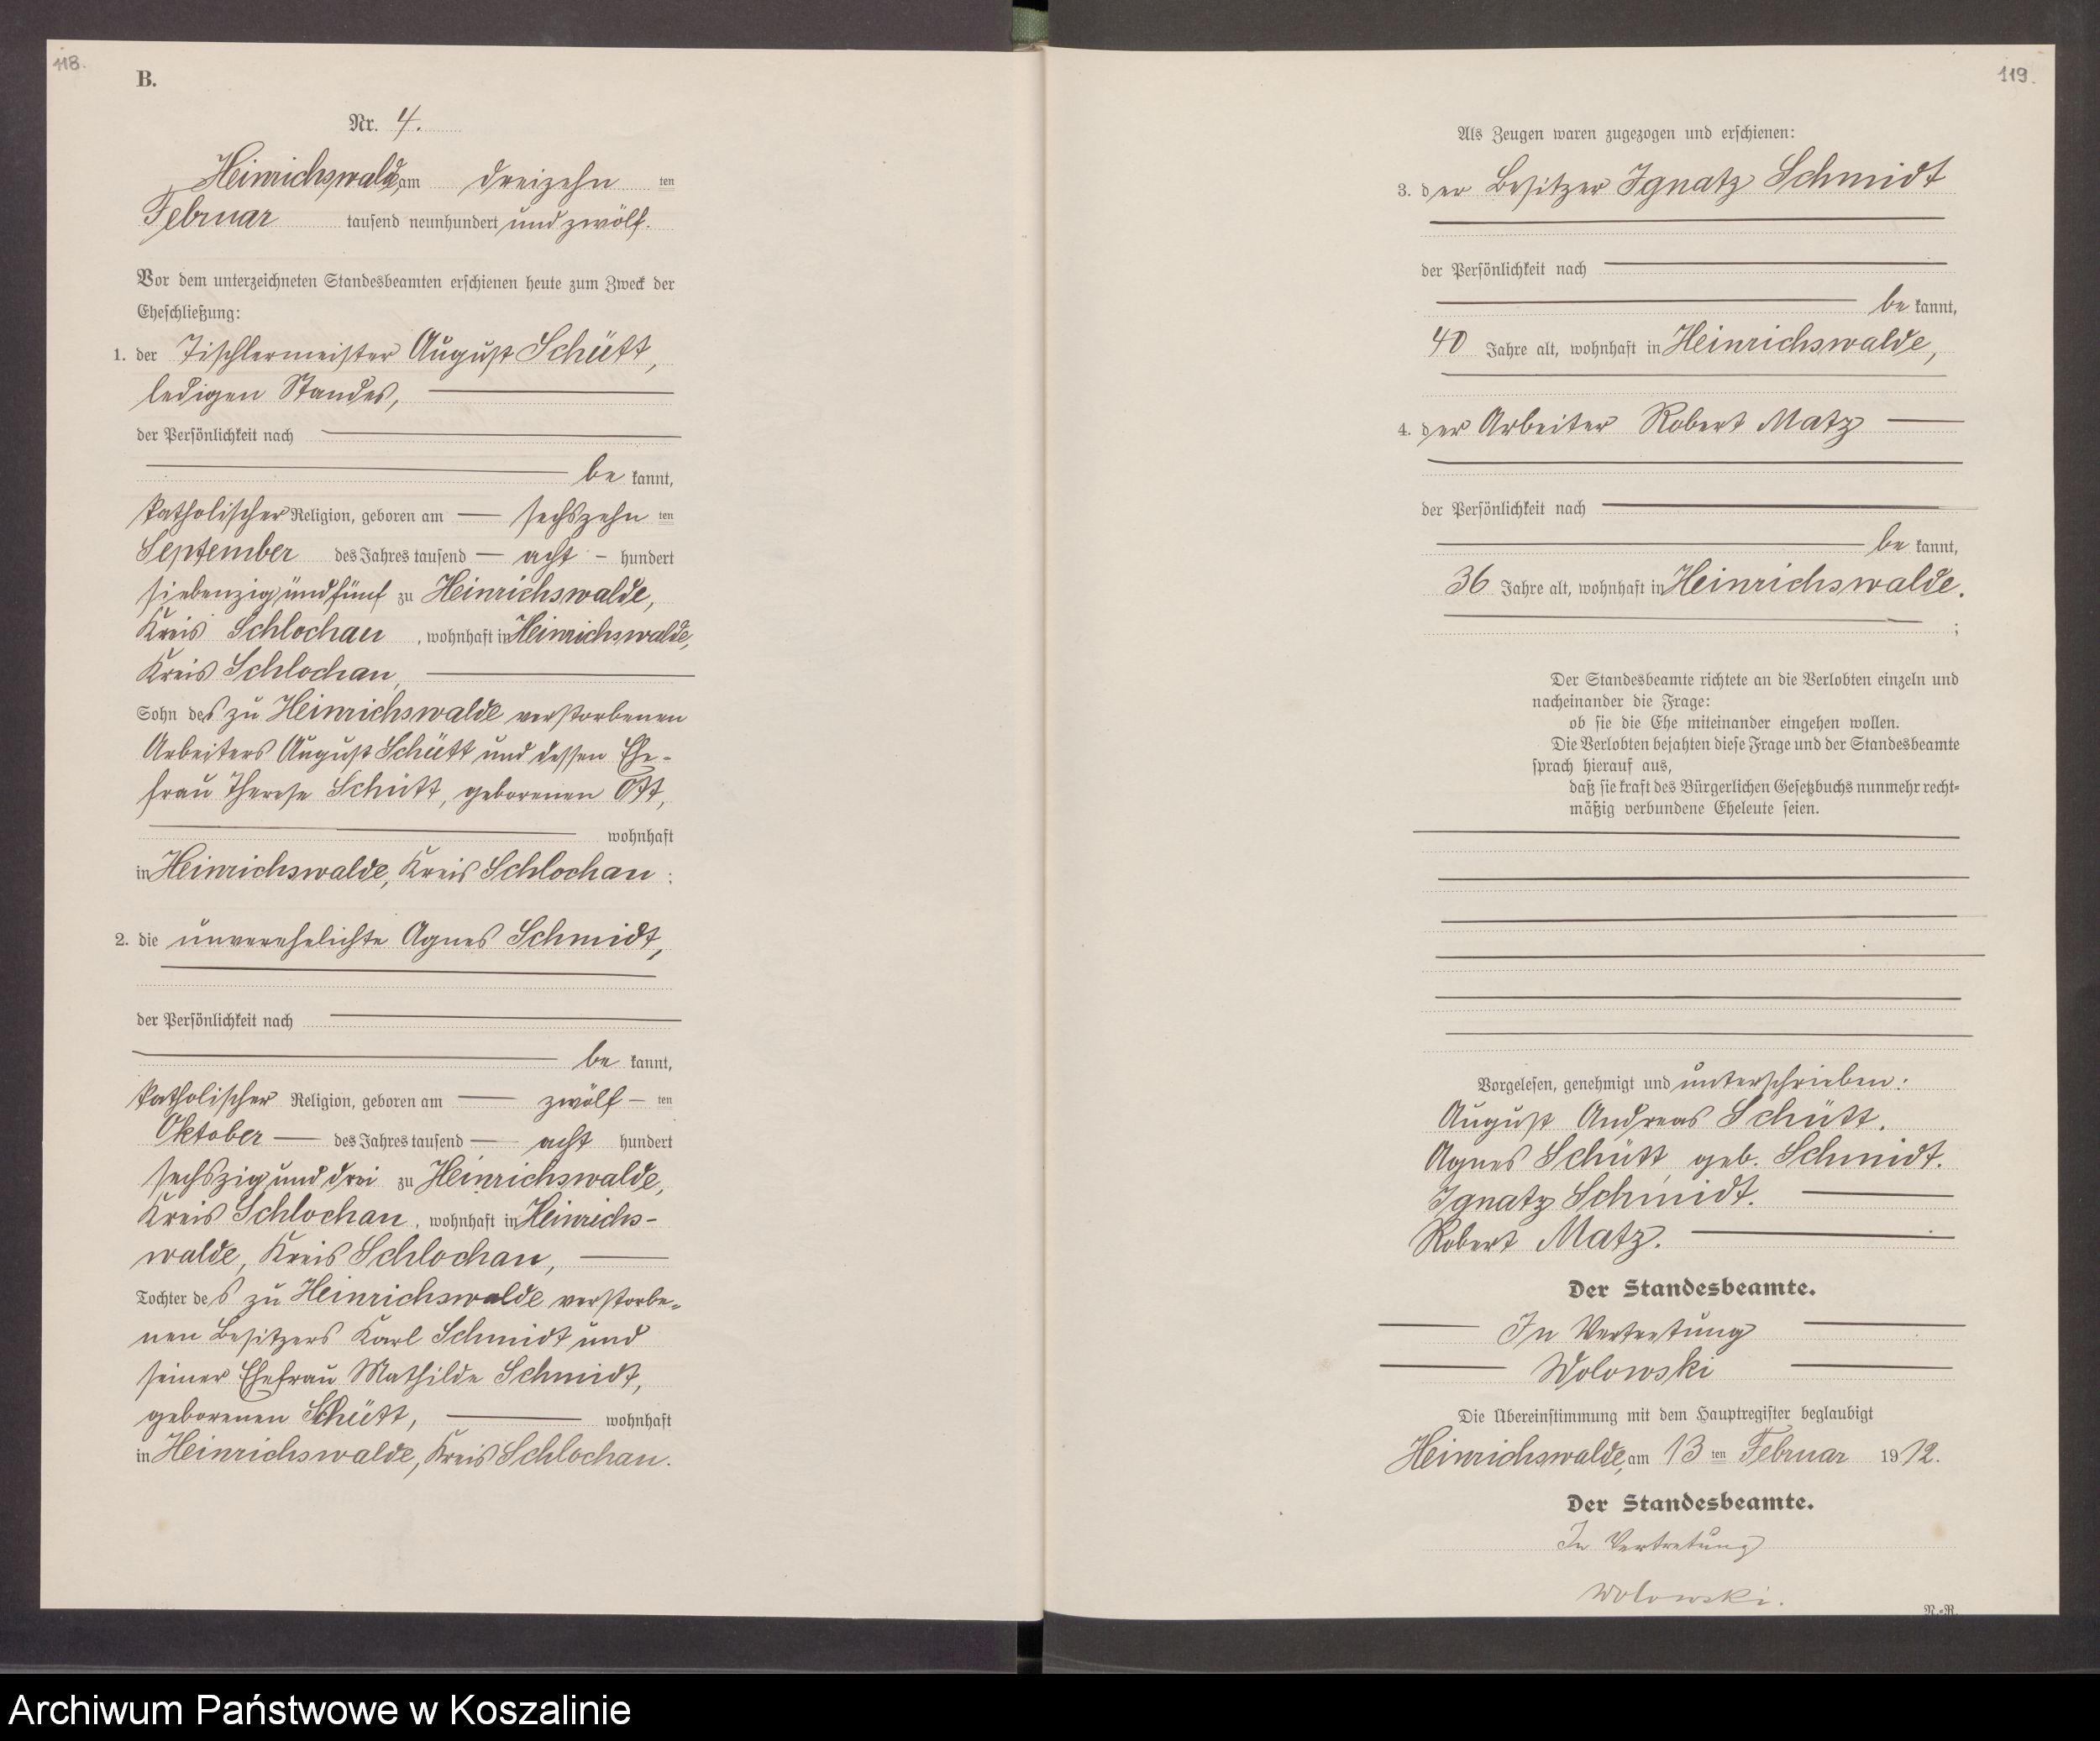 118.
B.
Nr. 4.
Heinrichswalde, am dreizehn ten
Februar tausend neunhundert und zwölf.
Vor dem unterzeichneten Standesbeamten erschienen heute zum Zweck der
Eheschließung:
1. der Tischlermeister August Schütt,
ledigen Standes,
der Persönlichkeit nach
be kannt,
katholischer Religion, geboren am sechszehn ten
September des Jahres tausend acht hundert
siebenzig und fünf zu Heinrichswalde,
Kreis Schlochau, wohnhaft in Heinrichswalde,
Kreis Schlochau,
Sohn des zu Heinrichswalde verstorbenen
Arbeiters August Schütt und dessen Ehe-
frau Therese Schütt, geborenen Ott,
wohnhaft
in Heinrichswalde, Kreis Schlochau;
2. die unverehelichte Agnes Schmidt,
der Persönlichkeit nach
be kannt,
katholischer Religion, geboren am zwölf ten
Oktober des Jahres tausend acht hundert
sechszig und drei zu Heinrichswalde,
Kreis Schlochau, wohnhaft in Heinrichs-
walde, Kreis Schlochau,
Tochter des zu Heinrichswalde verstorbe-
nen Besitzers Karl Schmidt und
seiner Ehefrau Mathilde Schmidt,
geborenen Schütt, wohnhaft
in Heinrichswalde, Kreis Schlochau.
119.
Als Zeugen waren zugezogen und erschienen:
3. der Besitzer Ignatz Schmidt
der Persönlichkeit nach
be kannt,
40 Jahre alt, wohnhaft in Heinrichswalde,
4. der Arbeiter Robert Matz
der Persönlichkeit nach
be kannt,
36 Jahre alt, wohnhaft in Heinrichswalde.
;
Der Standesbeamte richtete an die Verlobten einzeln und
nacheinander die Frage:
ob sie die Ehe miteinander eingehen wollen.
Die Verlobten bejahten diese Frage und der Standesbeamte
sprach hierauf aus,
daß sie kraft des Bürgerlichen Gesetzbuchs nunmehr recht-
mäßig verbundene Eheleute seien.
Vorgelesen, genehmigt und unterschrieben:
August Andreas Schütt.
Agnes Schütt geb. Schmidt.
Ignatz Schmidt.
Robert Matz.
Der Standesbeamte.
In Vertretung
Wolowski
Die Übereinstimmung mit dem Hauptregister beglaubigt
Heinrichswalde, am 13 ten Februar 1912.
Der Standesbeamte.
In Vertretung
Wolowski.
N.-R.
Archiwum Państwowe w Koszalinie